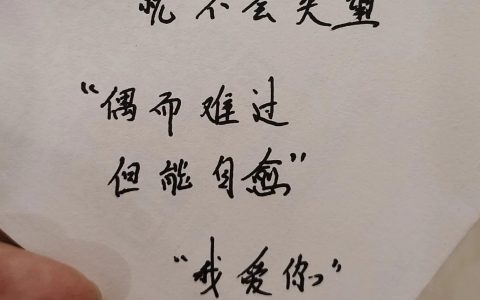 就不会失望
“偶而难过
但能自愈”
“我爱你”